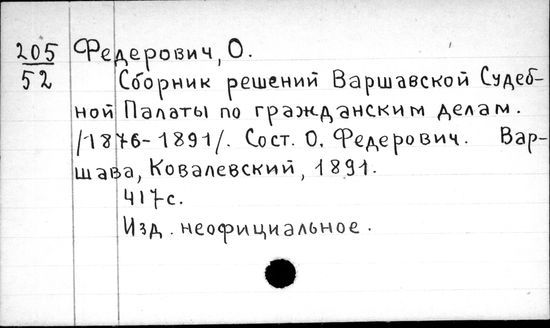 205 Федерович, О.
52 Сборник решений Варшавской Судеб-
ной Палаты по гражданским делам.
/1876-1891/. Сост. О. Федерович. Вар-
шава, Ковалевский, 1891.
417с.
Изд. неофициальное.